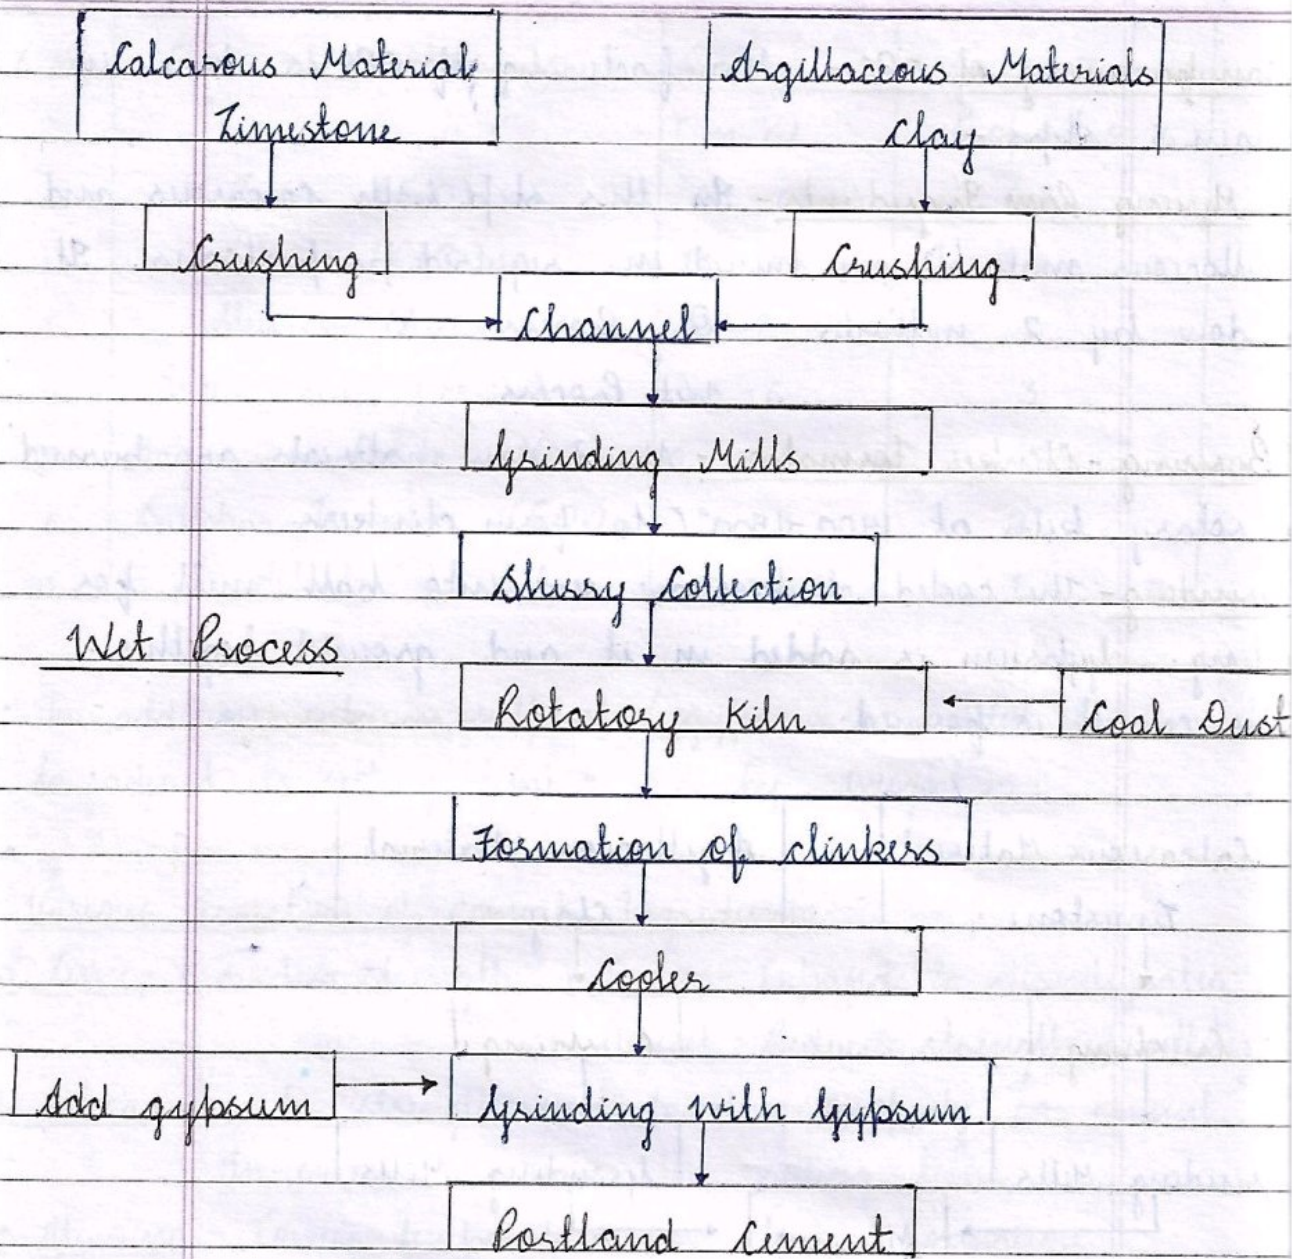 Calcarous Material
Limestone
Argillaceous Materials
Clay
Crushing
Crushing
Channel
Grinding Mills
Slurry Collection
Wet Process
Rotatory Kiln
Coal Dust
Formation of clinkers
Cooler
Add gypsum
Grinding with Gypsum
Portland Cement